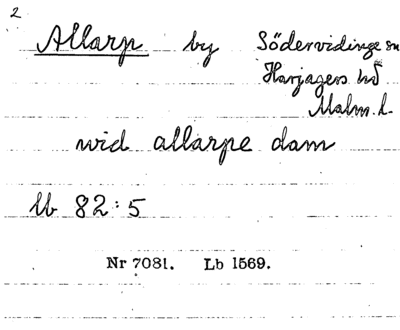 2
Allarp by Södervidinge sn
Harjagers hd
Malm. l.
wid allarpe dam
Ub 82:5
Nr 7081. Lb 1569.